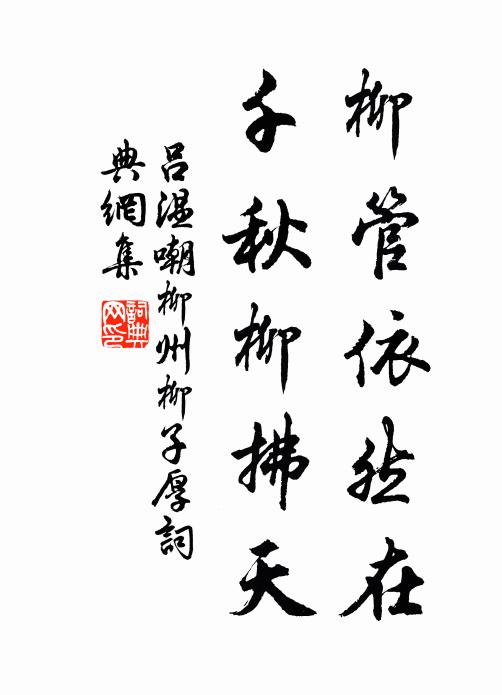 柳管依然在
千秋柳拂天
吕温嘲柳州柳子厚詞
典網集
詞典网印